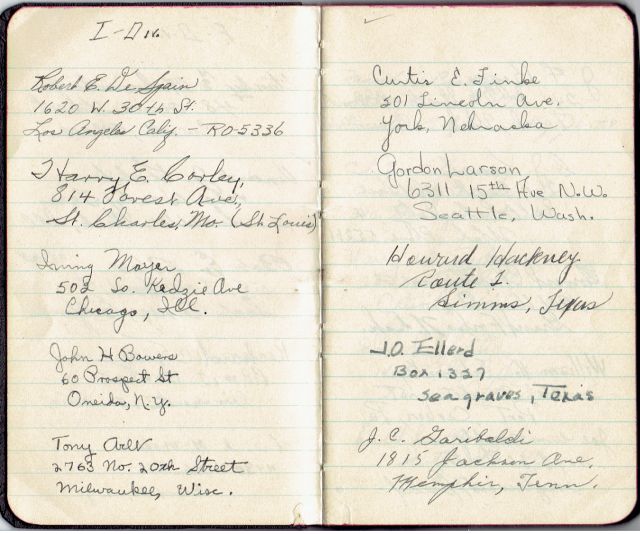 I-D 16
Robert E. De Spain
1620 W. 30th St.
Los Angeles Calif. - RO-5336
Harry E. Corley,
814 Forest Ave.,
St. Charles, Mo. (St. Louis)
Irving Mayer
502 So. Kedzie Ave
Chicago, Ill.
John H Bowers
60 Prospect St
Oneida, N.Y.
Tony
2763 No. 20th Street
Milwaukee, Wisc.
Curtis E. Finke
501 Lincoln Ave.
York, Nebraska
Gordon Larson,
6311 15th Ave N.W.
Seattle, Wash.
Howard Hackney
Route 1.
Simms, Texas
J.D. Ellerd
Box 1327
Seagraves, Texas
J. C. Garibaldi
1815 Jackson Ave.
Memphis, Tenn.